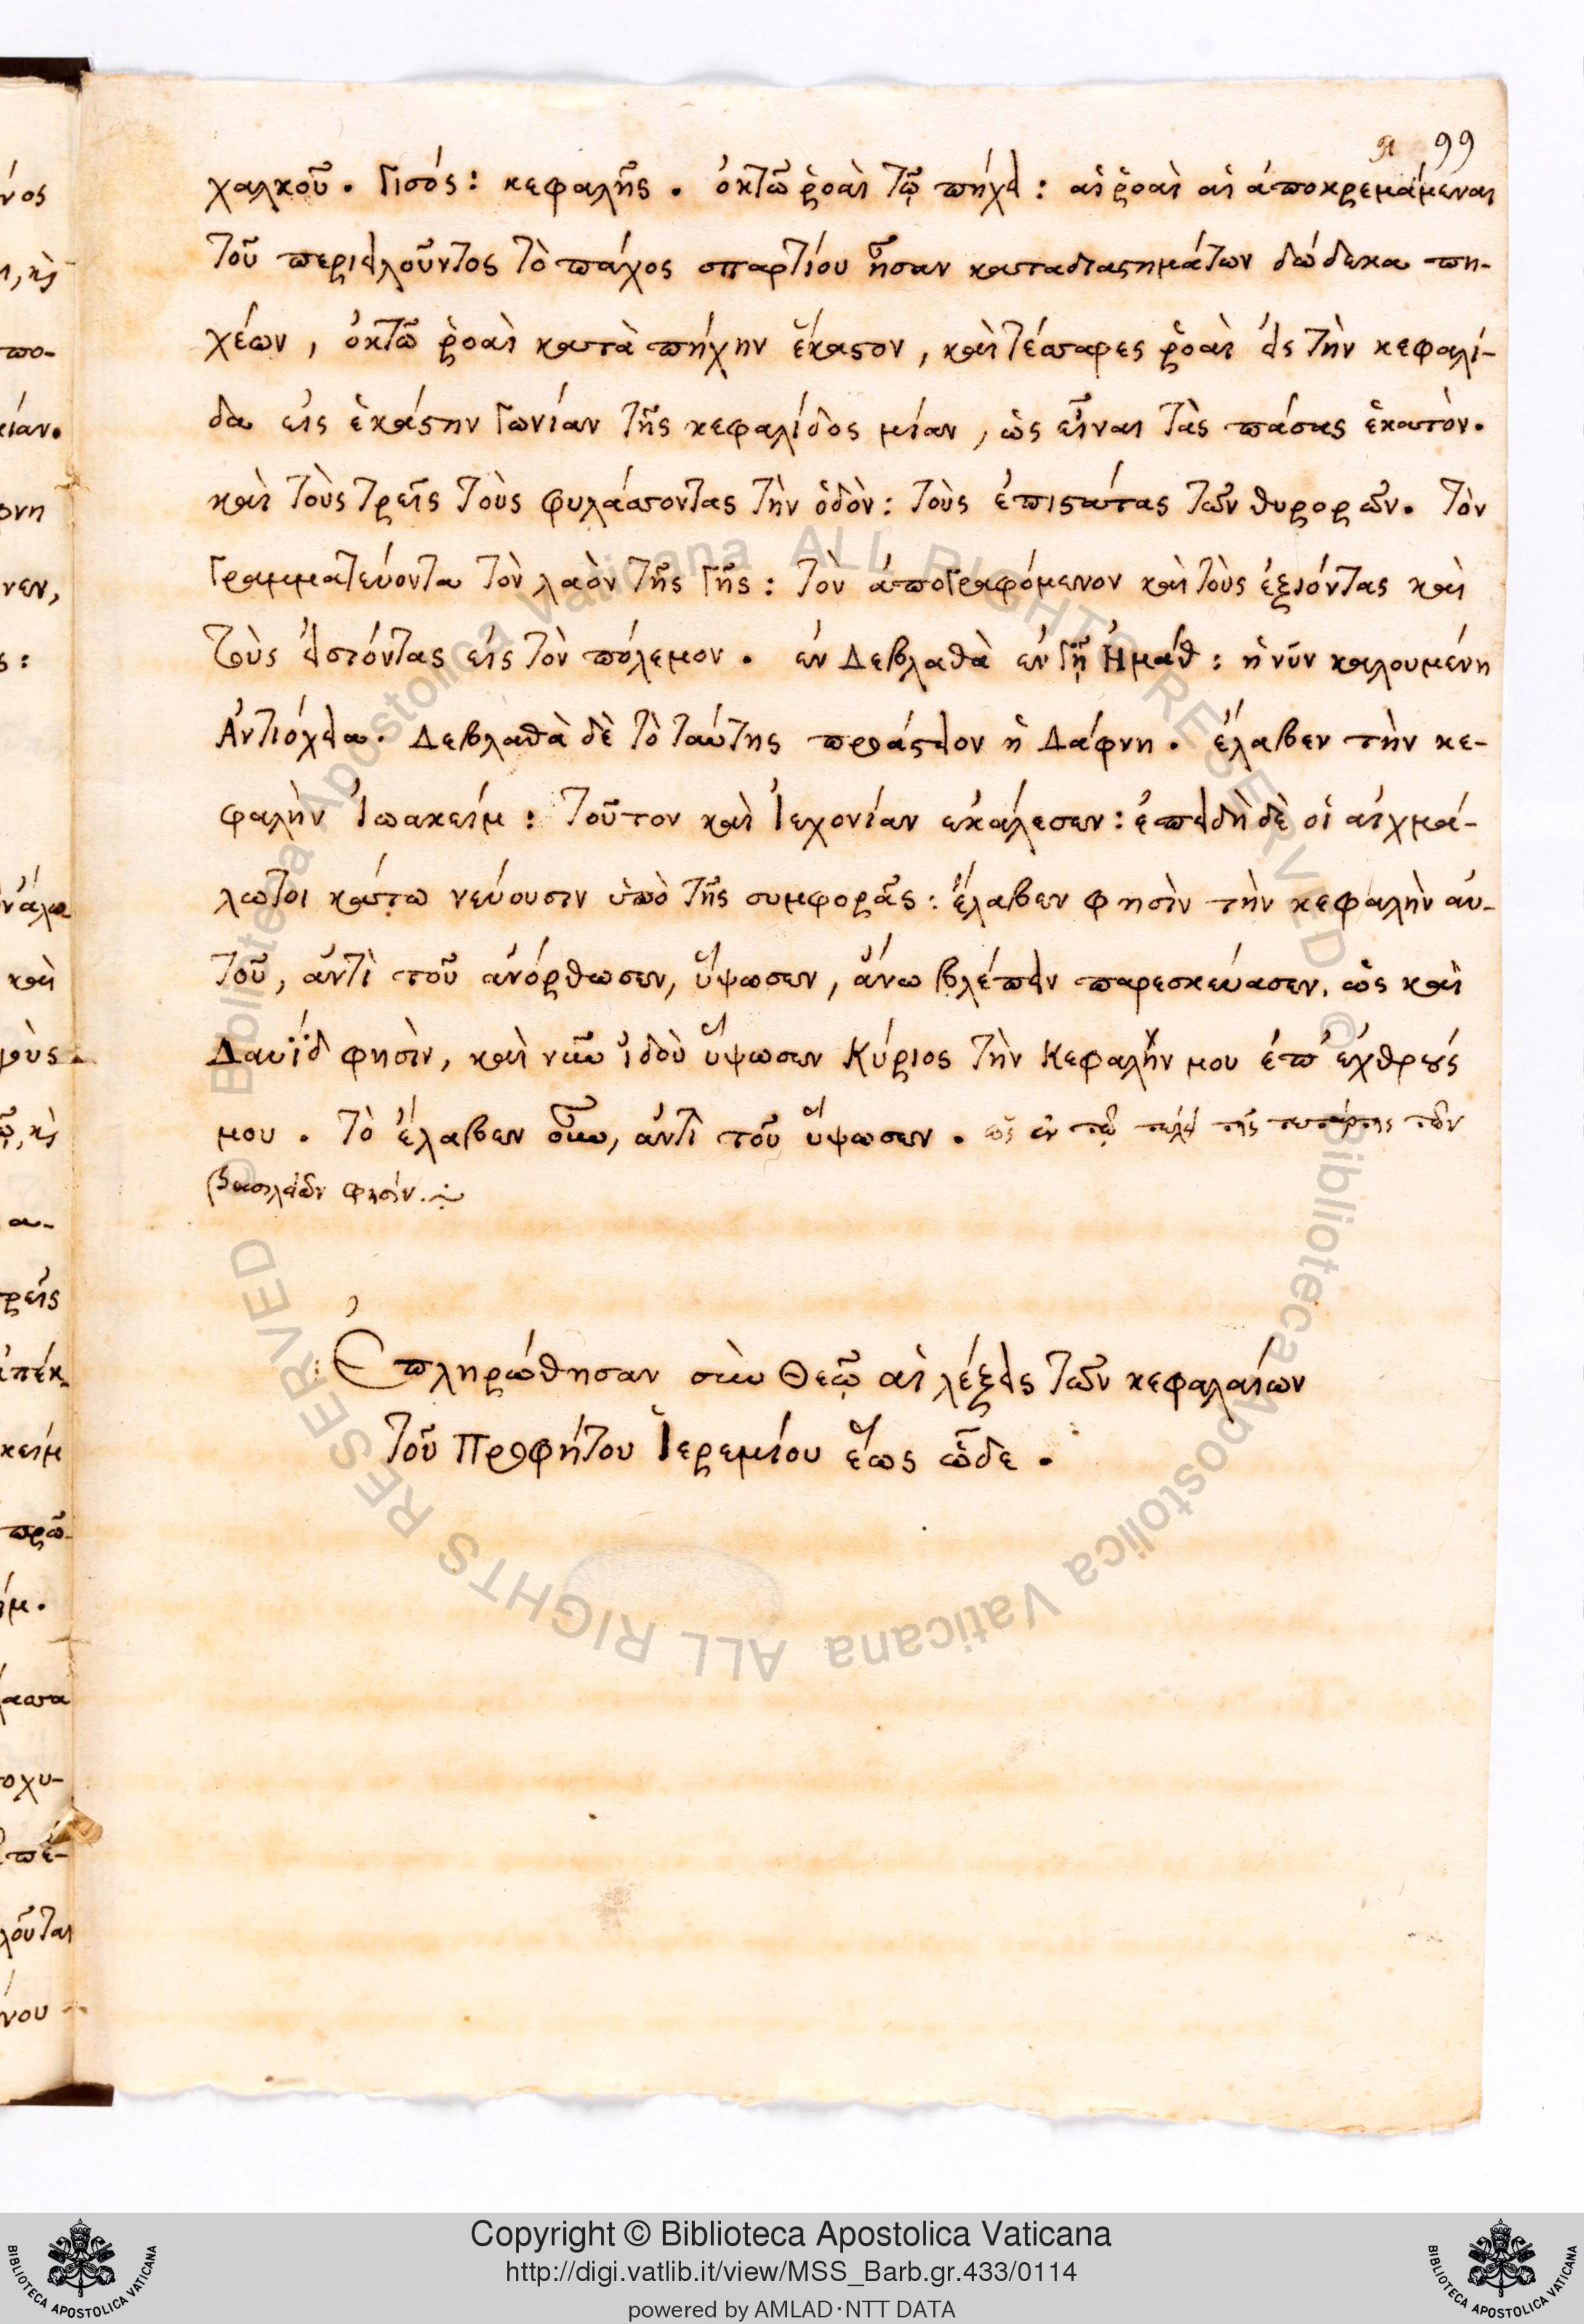 99
χαλκοῦ. γισός: κεφαλῆς. ὀκτῶ ῥοαὶ τῷ πήχει: αἱ ῥοαὶ αἱ ἀποκρεμάμεναι
τοῦ περιειλοῦντος τὸ πάχος σπαρτίου ἦσαν καταδιαστημάτων δώδεκα πη-
χέων, ὀκτῶ ῥοαὶ κατὰ πήχην ἕκαστον, καὶ τέσσαρες ῥοαὶ εἰς τὴν κεφαλί-
δα εἰς ἑκάστην γωνίαν τῆς κεφαλίδος μίαν, ὡς εἶναι τὰς πάσας ἑκατὸν.
καὶ τοὺς τρεῖς τοὺς φυλάσσοντας τὴν ὁδὸν: τοὺς ἐπιστάτας τῶν θυρορῶν. τὸν
γραμματεύοντα τὸν λαὸν τῆς γῆς: τὸν ἀπογραφόμενον καὶ τοὺς ἐξιόντας καὶ
τοὺς εἰσιόντας εἰς τὸν πόλεμον. ἐν Δεβλαθὰ ἐν γῇ Ἠμάθ: ἡ νῦν καλουμένη
Ἀντιόχεια. Δεβλαθὰ δὲ τὸ ταύτης προάστειον ἡ Δάφνη. ἔλαβεν τὴν κε-
φαλὴν Ἰωακείμ: τοῦτον καὶ Ἰεχονίαν ἐκάλεσεν: ἐπειδὴ δὲ οἱ αἰχμά-
λωτοι κάτω νεύουσιν ὑπὸ τῆς συμφορᾶς: ἔλαβεν φησὶν τὴν κεφαλὴν αὐ-
τοῦ, ἀντὶ τοῦ ἀνόρθωσεν, ὕψωσεν, ἄνω βλέπειν παρεσκεύασεν, ὡς καὶ
Δαυῒδ φησὶν, καὶ νῦν ἰδοὺ ὕψωσεν Κύριος τὴν Κεφαλήν μου ἐπ' ἐχθρούς
μου. τὸ ἔλαβεν οὖν, ἀντὶ τοῦ ὕψωσεν. ὡς ἐν τῷ τέλει τῆς τετάρτης τῶν
βασιλειῶν φησίν.
Ἐπληρώθησαν σὺν Θεῷ αἱ λέξεις τῶν κεφαλαίων
τοῦ Προφήτου Ἱερεμίου ἕως ὧδε.
Copyright © Biblioteca Apostolica Vaticana
http://digi.vatlib.it/view/MSS_Barb.gr.433/0114
powered by AMLAD·NTT DATA